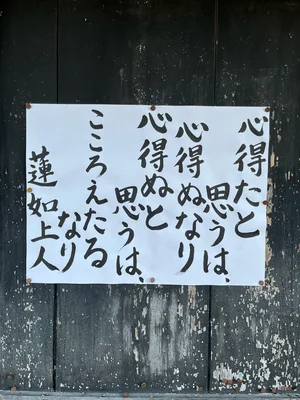 心得たと
思うは、
心得ぬなり
心得ぬと
思うは、
こころえたる
なり
蓮如上人